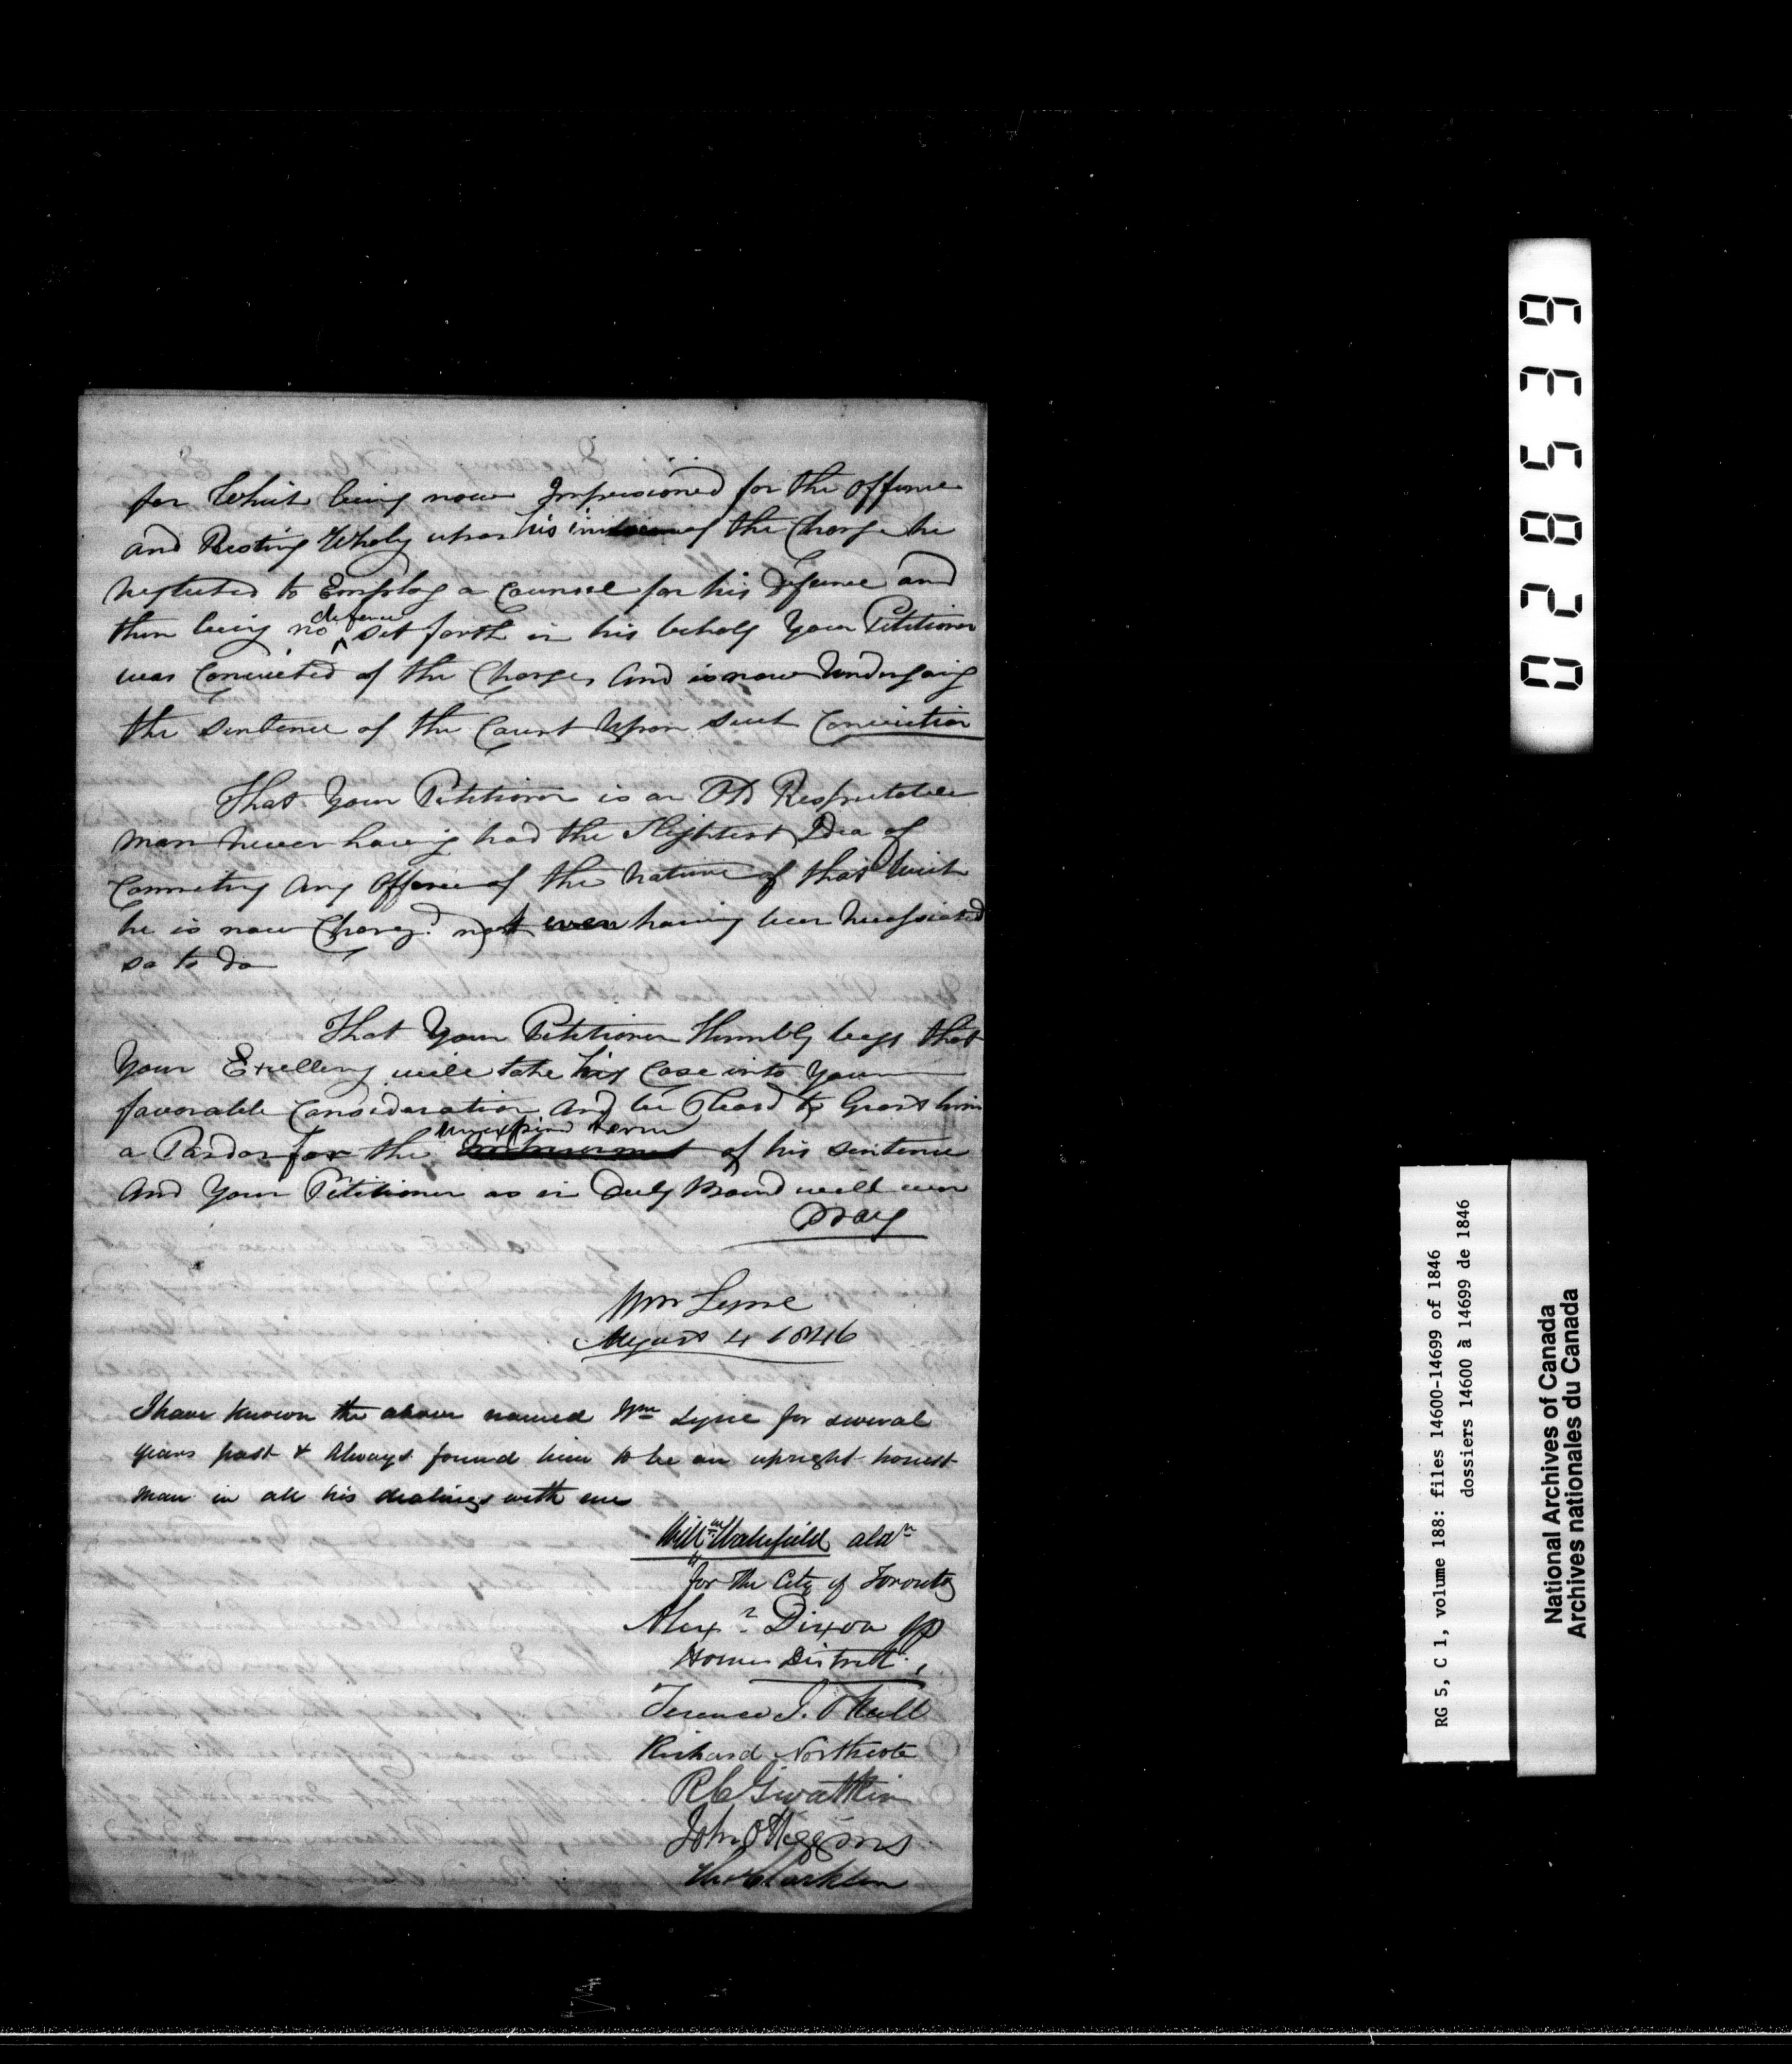 for Which being now Impressioned for the offence
and Resting Wholy upon his of the Charge he
neglected to Employ a Counsel for his Defence and
then being no defence set forth in his behalf Your Petitioner
was Convicted of the Charge, And is now Undergoing
the sentence of the Court Upon such Conviction
That Your Petitioner is an Old Respectable
man never having had the Slightest Idea of
Commeting Any Offence of the Nature of that Wich
he is now Charg.d not even having been Necessiated
so to do
That Your Petitioner Humbly begs that
Your Excellency will take his Case into Your
favorable Consideration And be Pleasd to Grant him
a Pardon for the unexpired term of his sentence
And Your Petitioner as in Duty Bound will ever
Pray
Wm Lyne
August 4 1846
I have known the above named Wm Lyne for several
years past & Always found him to be an upright honest
man in all his dealings with me
Willm Wakefield aldn
for the City of Toronto
Alexr Dixon JP
Home District
Terence J. O'Neill
Richard Northcote
R C Gwatkin
John O Higgins
028539
RG 5, C 1, volume 188: files 14600-14699 of 1846
dossiers 14600 à 14699 de 1846
National Archives of Canada
Archives nationales du Canada